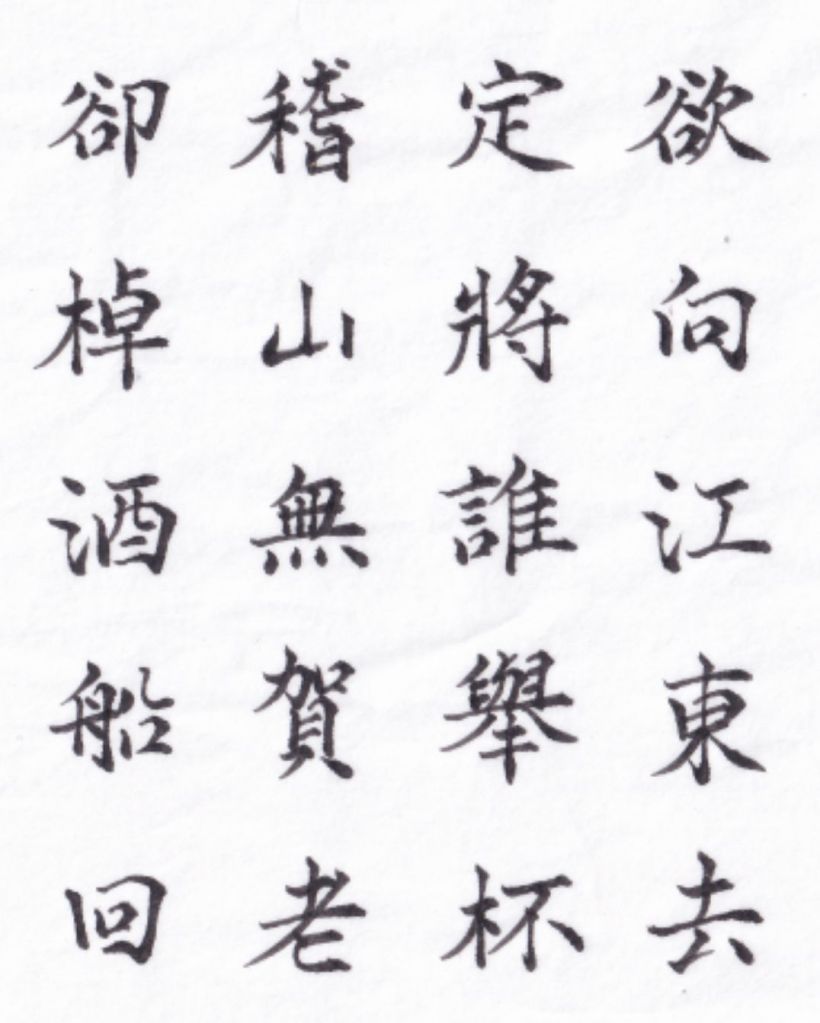 欲向江東去
定將誰舉杯
稽山無賀老
卻棹酒船回